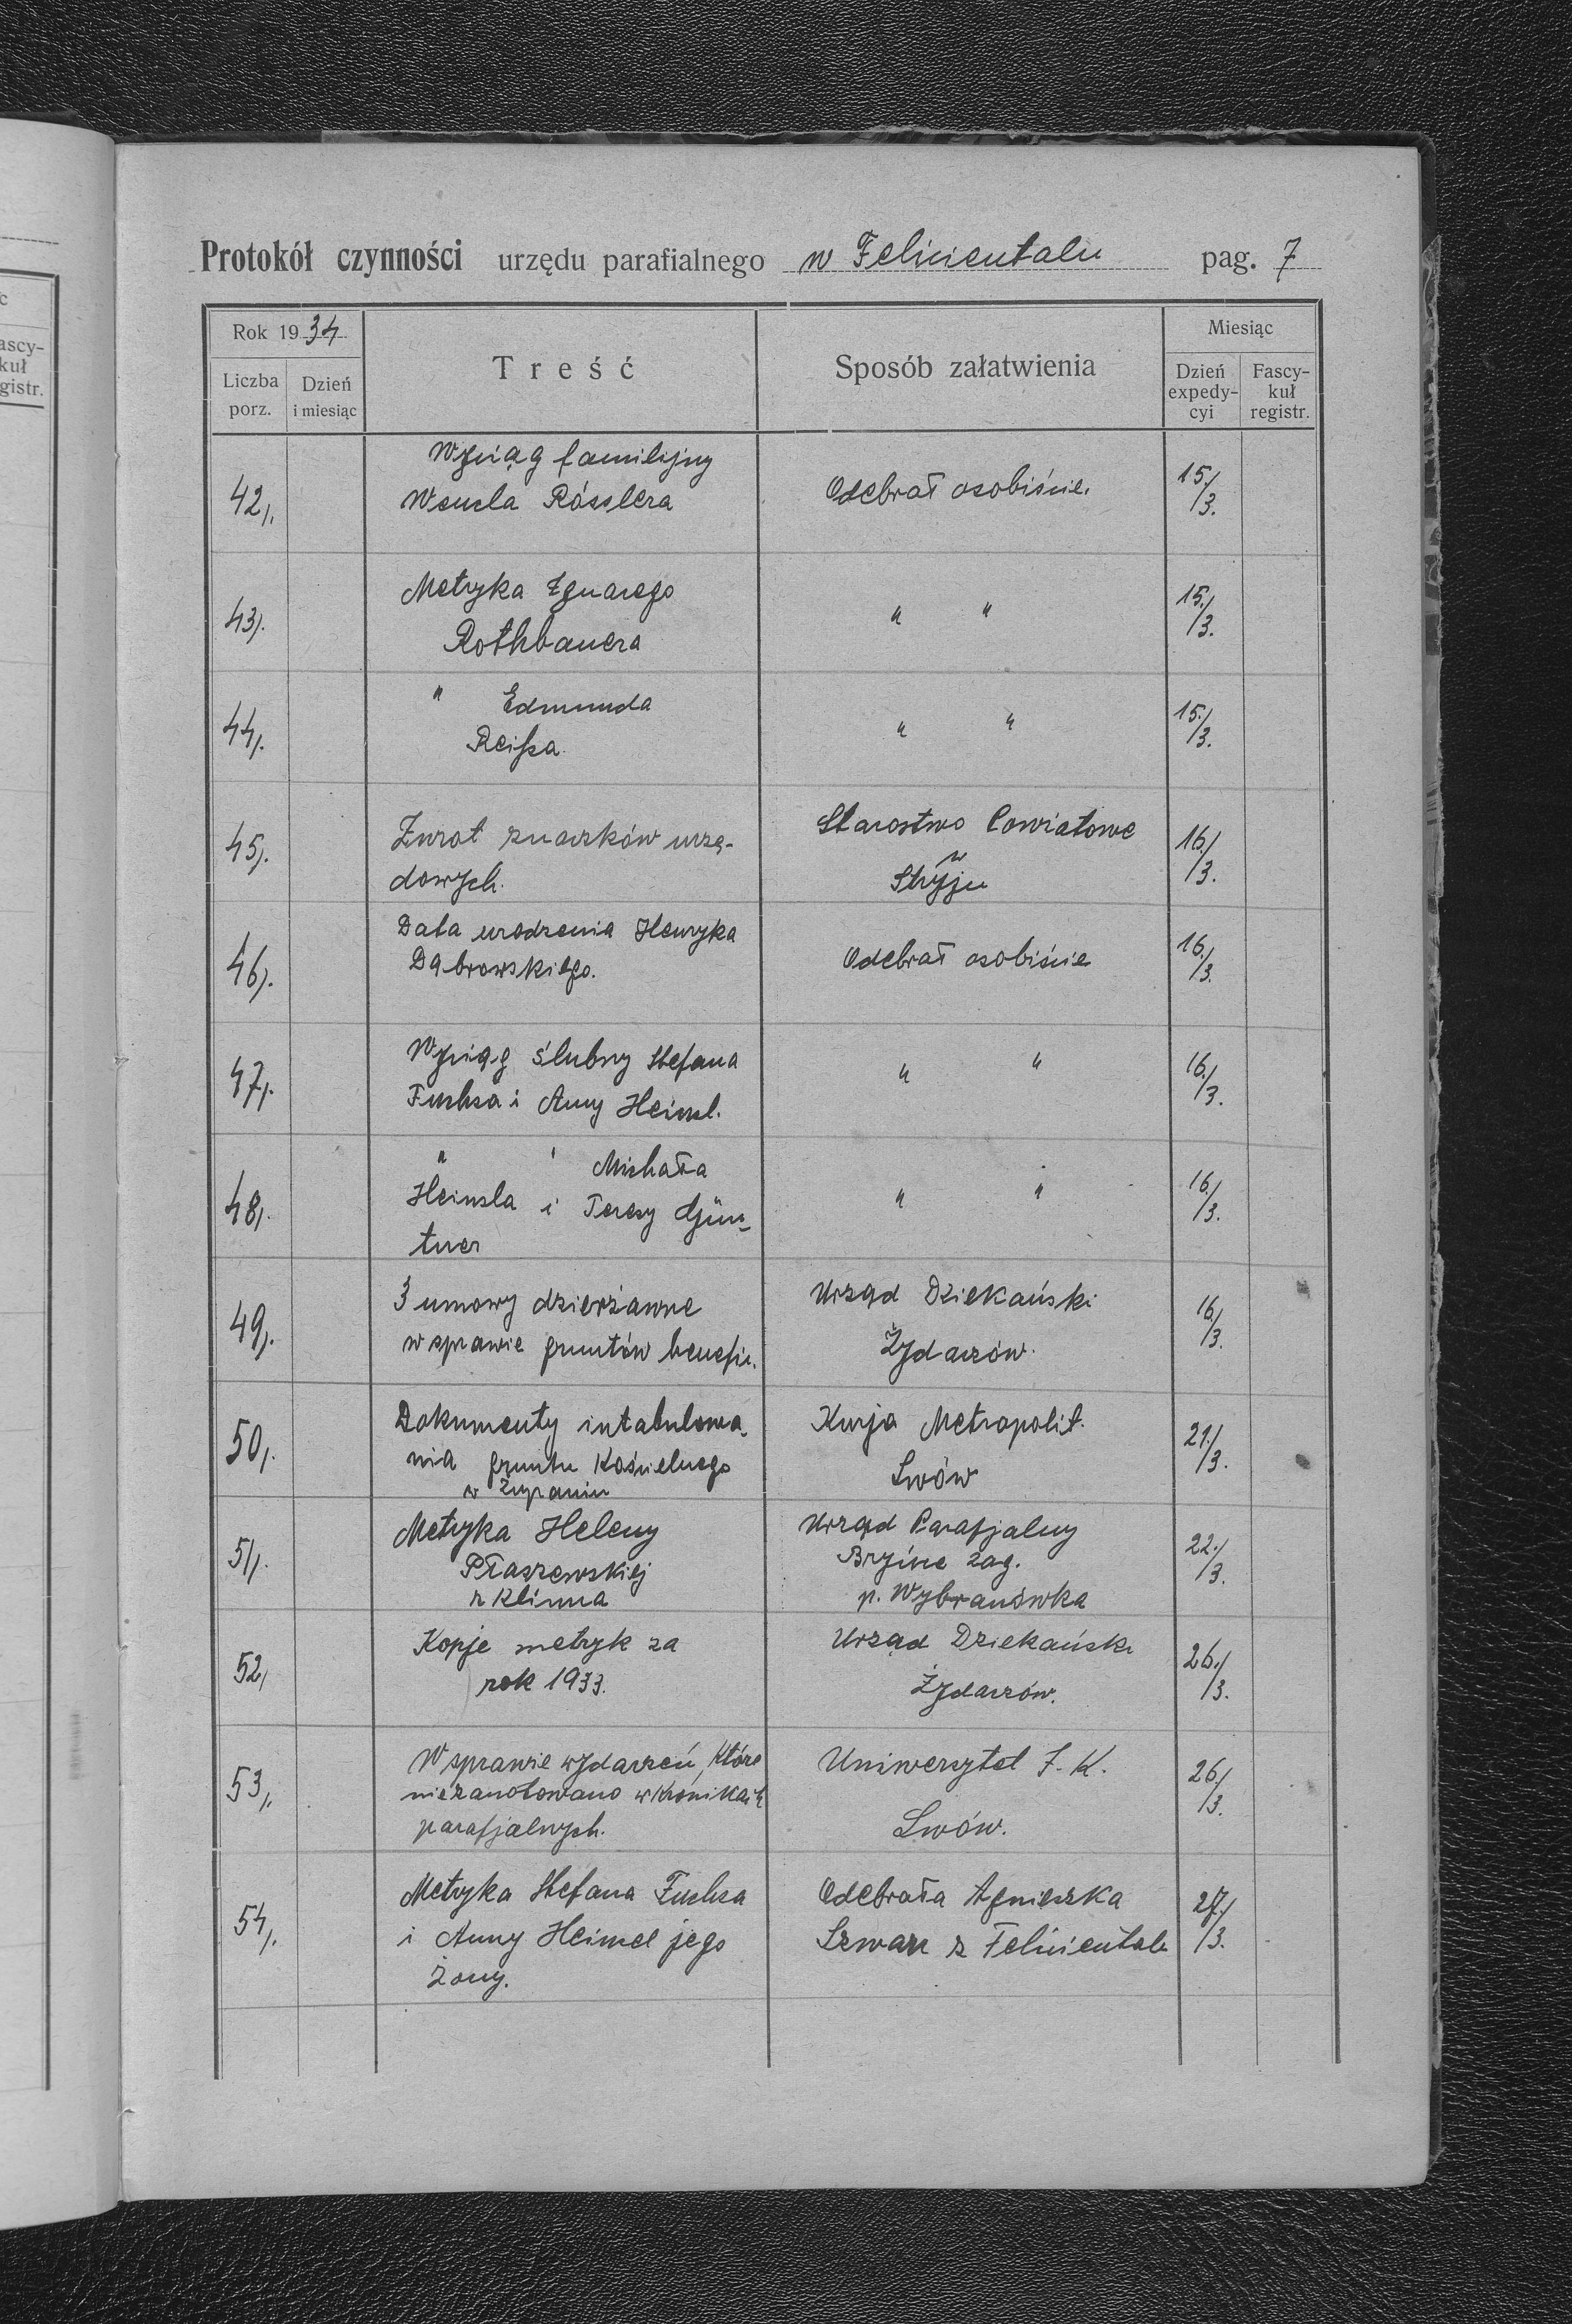 Protokół czynności urzędu parafialnego w Felicientalu pag. 7
Rok 1934
Liczba porz.
Dzień i miesiąc
Treść
Sposób załatwienia
Miesiąc
Dzień expedy-cyi
Fascy-kuł registr.
42,.
Wyciąg familijny
Wencla Rösslera
Odebrał osobiście.
15./3.
43,.
Metryka Ignacego
Rothbauera
" "
15./3.
44,.
" Edmunda
Reißa
" "
15./3.
45,.
Zwrot znaczków urzę-
dowych.
Starostwo Powiatowe
w
Stryju
16./3.
46,.
Data urodzenia Henryka
Dąbrowskiego.
Odebrał osobiście
16./3.
47,.
Wyciąg ślubny Stefana
Fuchsa i Anny Heimel.
" "
16./3.
48,.
" " Michała
Heimla i Teresy Gün-
tner
" "
16./3.
49,.
3 umowy dzierżawne
w sprawie gruntów benefic.
Urząd Dziekański
Żydaczów.
16./3.
50,.
Dokumenty intabulowa-
nia gruntu kościelnego
w Żupaniu
Kurja Metropolit.
Lwów
21./3.
51,.
Metryka Heleny
Płaszewskiej
z Klimca
Urząd Parafjalny
zag.
p. Wybranówka
22./3.
52,
Kopje metryk za
rok 1933.
Urząd Dziekański
Żydaczów.
26./3.
53,.
W sprawie wydarzeń, które
niezanotowano w kronikach
parafjalnych.
Uniwersytet J. K.
Lwów.
26./3.
54,.
Metryka Stefana Fuchsa
i Anny Heimel jego
żony.
Odebrała Agnieszka
Szwarz z Felicientalu
27./3.
c
ascy-
kuł
gistr.